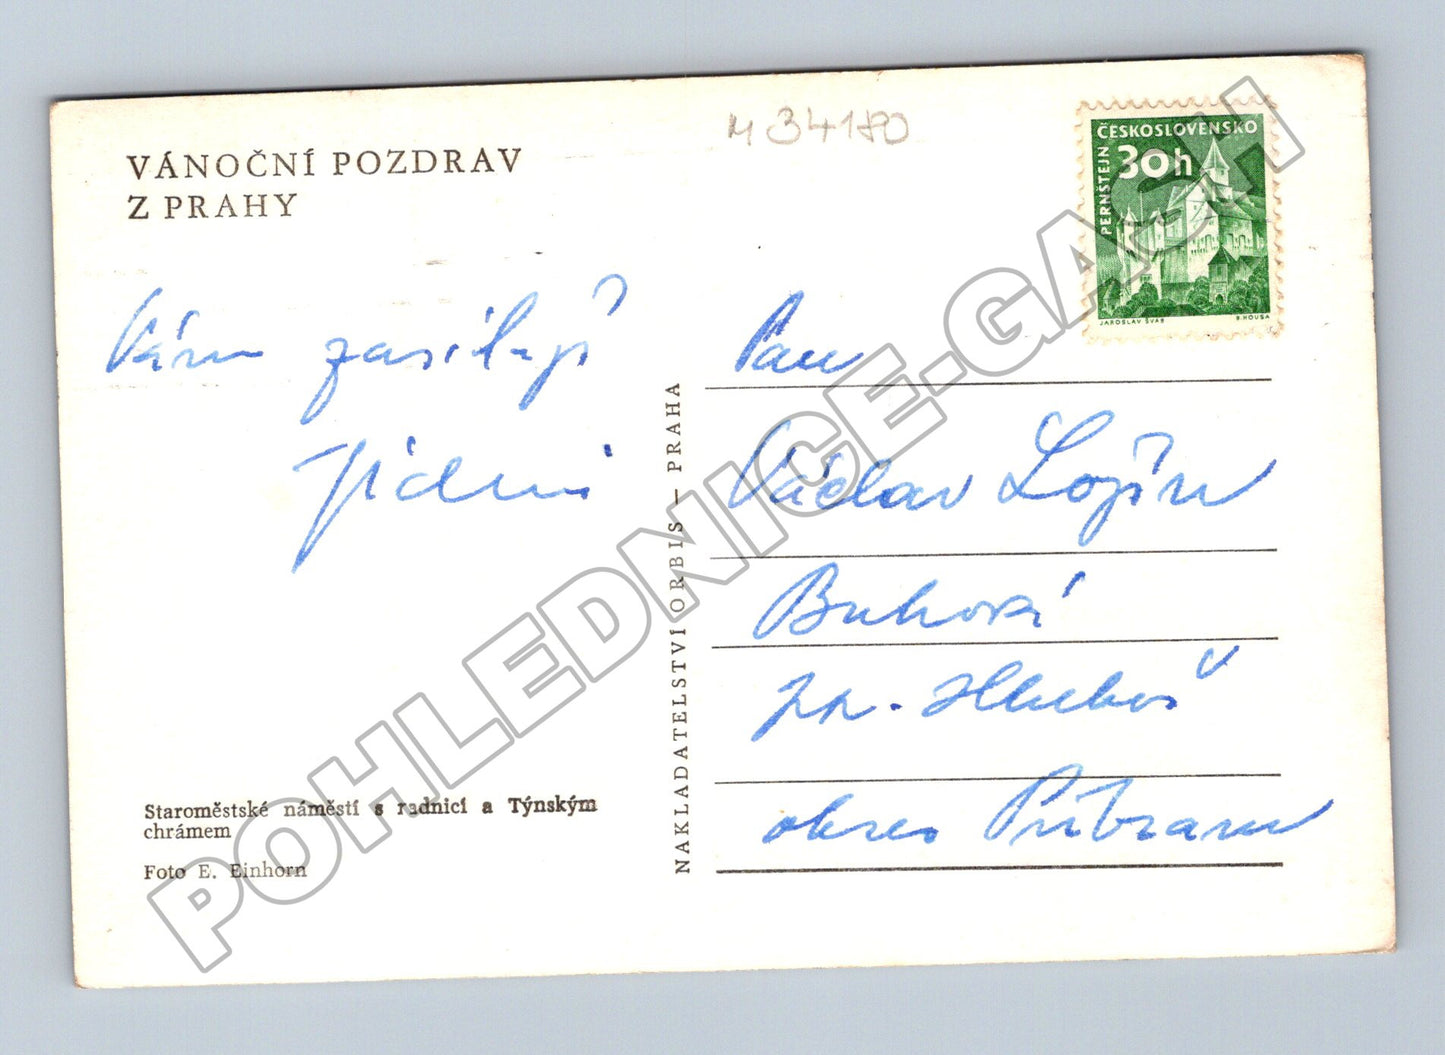 VÁNOČNÍ POZDRAV
Z PRAHY
M 34180
ČESKOSLOVENSKO
30h
PERNŠTEJN
JAROSLAV ŠVÁB
B. HOUSA
Vám zasílají
Pan
Václav
Buková
pp. Hluboš
okres Příbram
NAKLADATELSTVÍ ORBIS – PRAHA
Staroměstské náměstí s radnicí a Týnským
chrámem
Foto E. Einhorn
POHLEDNICE-GASH